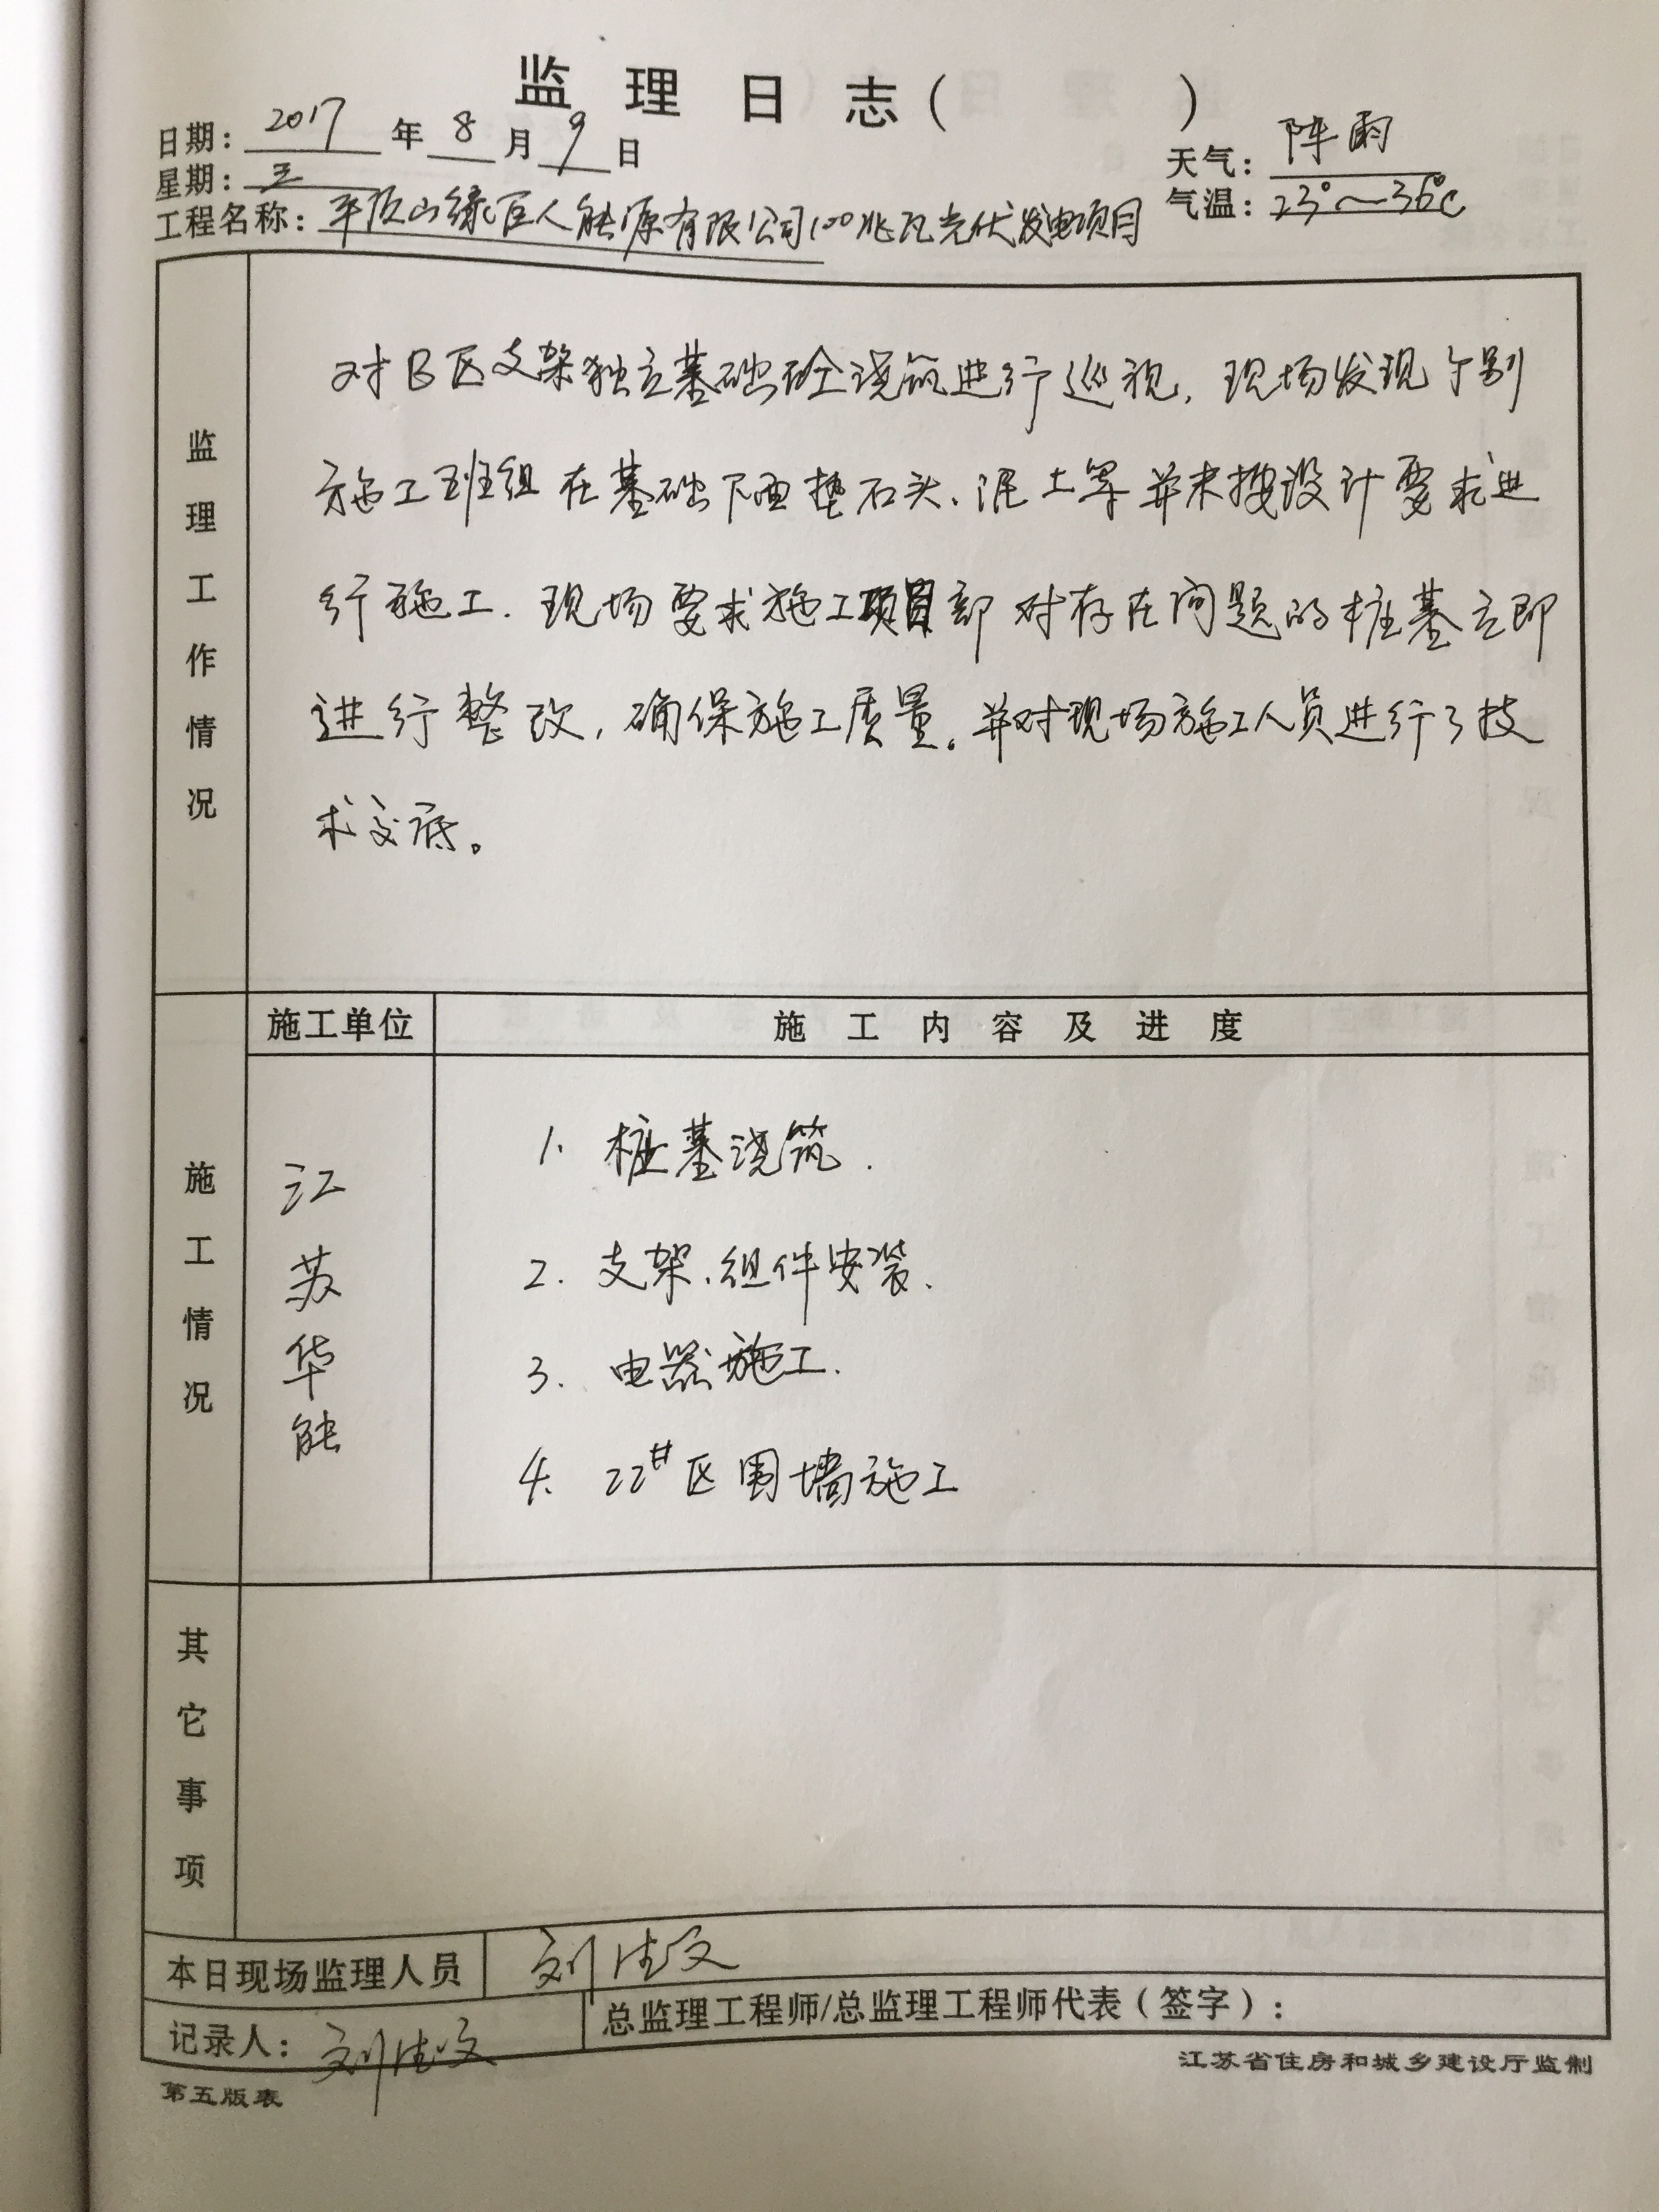 监理日志（　　　）
日期：2017年8月9日
天气：阵雨
星期：三
气温：23°～36℃
工程名称：平顶山绿巨人能源有限公司100兆瓦光伏发电项目
监理工作情况
对B区支架独立基础砼浇筑进行巡视，现场发现个别
施工班组在基础下面垫石头、泥土等并未按设计要求进
行施工．现场要求施工项目部对存在问题的桩基立即
进行整改，确保施工质量。并对现场施工人员进行了技
术交底。
施工情况
施工单位
施工内容及进度
江苏华能
1. 桩基浇筑．
2. 支架、组件安装．
3. 电器施工．
4. 22#区围墙施工
其它事项
本日现场监理人员 刘 文
记录人：刘 文
总监理工程师/总监理工程师代表（签字）：
第五版表
江苏省住房和城乡建设厅监制